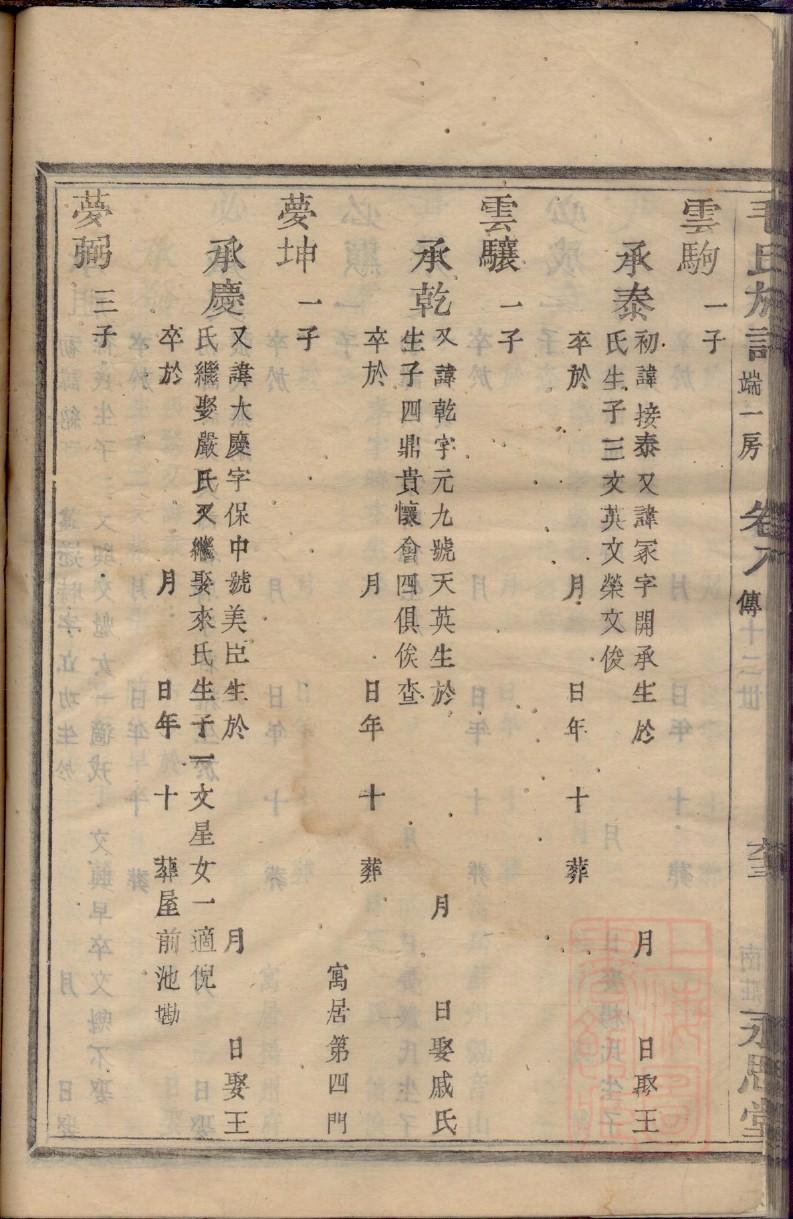 毛氏族譜 端一房 卷 傳 十三世 南莊 永思堂
雲駒 一子
承泰 初諱接泰又諱冢字開承生於 月 日娶王
氏生子三文英文榮文俊
卒於 月 日年 十 葬
雲驤 一子
承乾 又諱乾字元九號天英生於 月 日娶戚氏
生子四鼎貴懷會四俱俟查
卒於 月 日年 十 葬
寓居第四門
夢坤 一子
承慶 又諱大慶字保中號美臣生於 月 日娶王
氏繼娶嚴氏又繼娶來氏生子一文星女一適倪
卒於 月 日年 十 葬屋前池墈
夢弼 三子